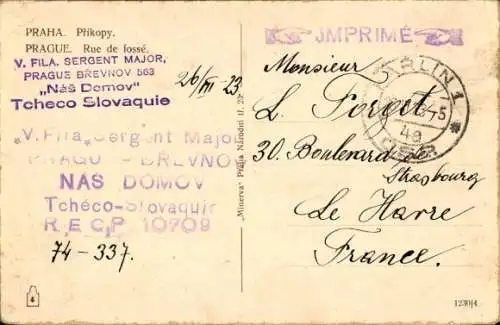 PRAHA. Příkopy.
PRAGUE. Rue de fossé.
V. FILA, SERGENT MAJOR,
PRAGUE BŘEVNOV 563
„Náš Domov"
Tcheco Slovaquie
26/VII 23
"V. Fila, Sergent Major
PRAGUE - BŘEVNOV
NAŠ DOMOV
Tchéco-Slovaquie
R.E.C.P 10709
74-337.
4
"Minerva" Praha Národní tř. 23
JMPRIMÉ
KOLÍN 1
4a
Monsieur
L. Forget
30. Boulevard de
Strasbourg
Le Havre
France.
1230/4